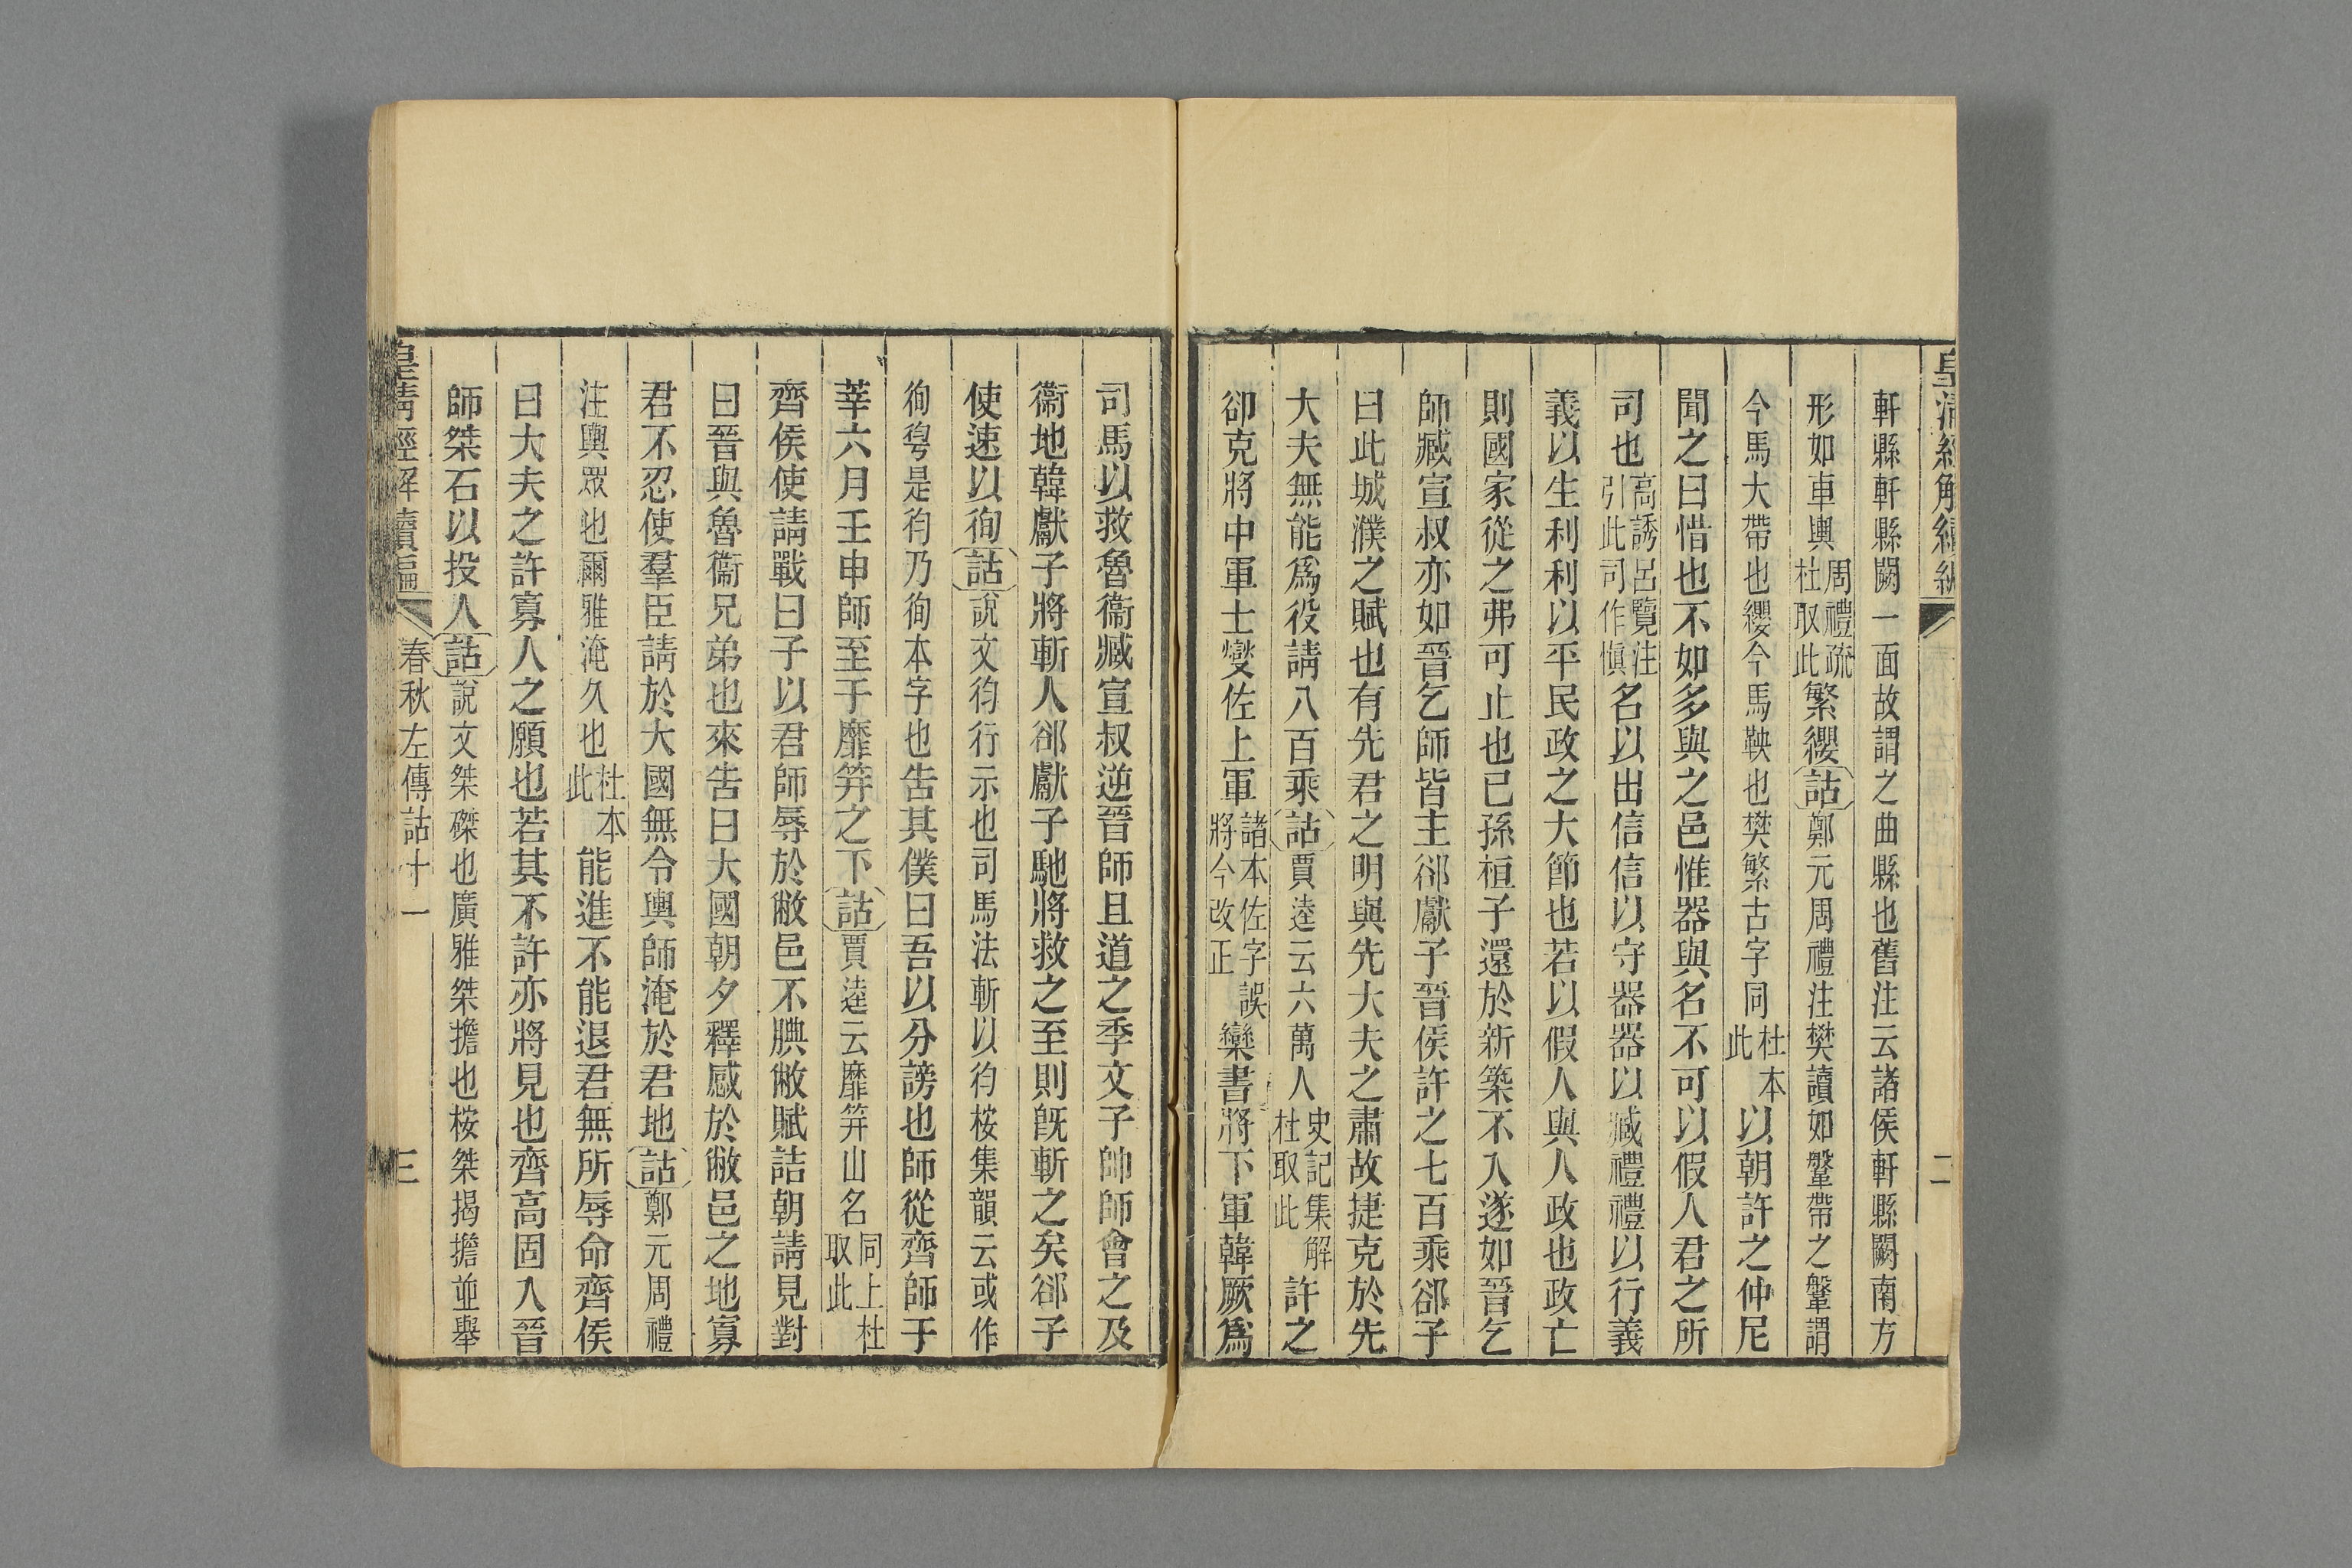 皇清經解續編
二
軒縣軒縣闕一面故謂之曲縣也舊注云諸侯軒縣闕南方
形如車輿周禮疏杜取此繁纓詁鄭元周禮注樊讀如鞶帶之鞶謂
今馬大帶也纓今馬鞅也樊繁古字同杜本此以朝許之仲尼
聞之曰惜也不如多與之邑惟器與名不可以假人君之所
司也高誘呂覽注引此司作愼名以出信信以守器器以臧禮禮以行義
義以生利利以平民政之大節也若以假人與人政也政亡
則國家從之弗可止也已孫桓子還於新築不入遂如晉乞
師臧宣叔亦如晉乞師皆主郤獻子晉侯許之七百乘郤子
曰此城濮之賦也有先君之明與先大夫之肅故捷克於先
大夫無能爲役請八百乘詁賈逵云六萬人史記集解杜取此許之
郤克將中軍士燮佐上軍諸本佐字誤將今改正欒書將下軍韓厥爲
司馬以救魯衞臧宣叔逆晉師且道之季文子帥師會之及
衞地韓獻子將斬人郤獻子馳將救之至則旣斬之矣郤子
使速以徇詁說文㣘行示也司馬法斬以㣘桉集韻云或作
徇㣘是㣘乃徇本字也吿其僕曰吾以分謗也師從齊師于
莘六月壬申師至于靡笄之下詁賈逵云靡笄山名同上杜取此
齊侯使請戰曰子以君師辱於敝邑不腆敝賦詰朝請見對
曰晉與魯衞兄弟也來吿曰大國朝夕釋感於敝邑之地寡
君不忍使羣臣請於大國無令輿師淹於君地詁鄭元周禮
注輿眾也爾雅淹久也杜本此能進不能退君無所辱命齊侯
曰大夫之許寡人之願也若其不許亦將見也齊高固入晉
師桀石以投人詁說文桀磔也廣雅桀擔也桉桀揭擔並舉
皇清經解續編
春秋左傳詁十一
三